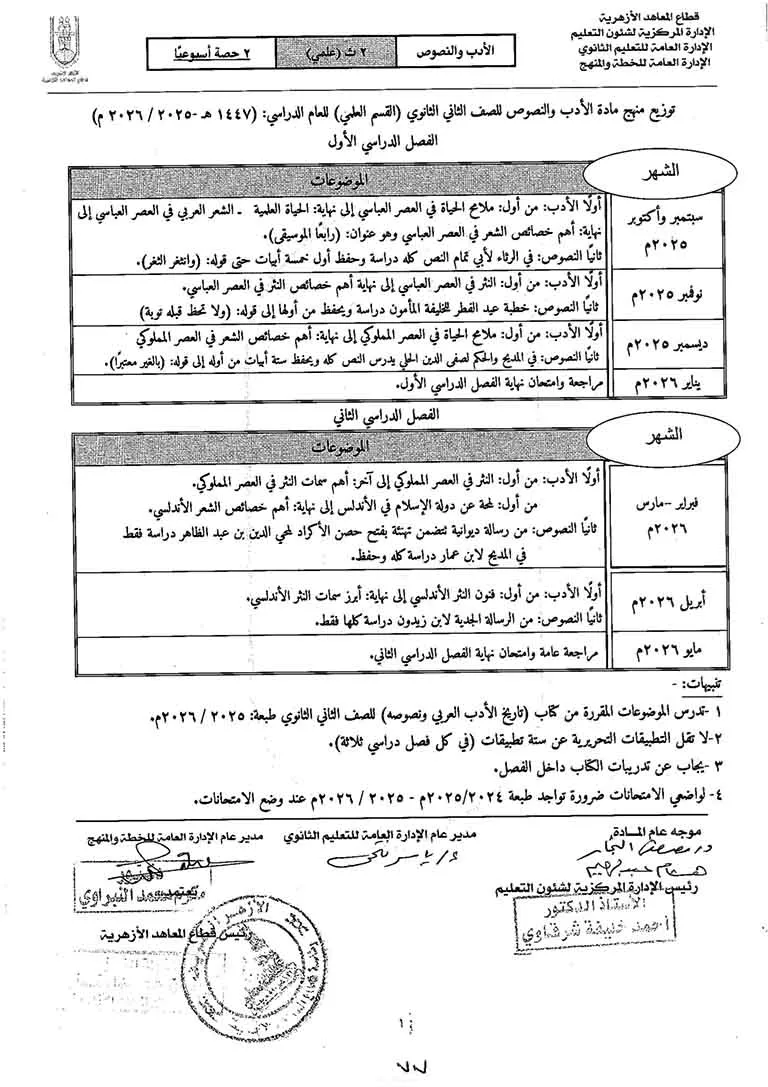 قطاع المعاهد الأزهرية
الإدارة المركزية لشئون التعليم
الإدارة العامة للتعليم الثانوي
الإدارة العامة للخطة والمنهج
الأدب والنصوص
٢ ث (علمي)
٢ حصة أسبوعيًا
توزيع منهج مادة الأدب والنصوص للصف الثاني الثانوي (القسم العلمي) للعام الدراسي: (١٤٤٧ هـ -٢٠٢٥ / ٢٠٢٦ م)
الفصل الدراسي الأول
الشهر
الموضوعات
سبتمبر وأكتوبر
٢٠٢٥م
أولًا الأدب: من أول: ملامح الحياة في العصر العباسي إلى نهاية: الحياة العلمية ـ الشعر العربي في العصر العباسي إلى
نهاية: أهم خصائص الشعر في العصر العباسي وهو عنوان: (رابعًا الموسيقى).
ثانيًا النصوص: في الرثاء لأبي تمام النص كله دراسة وحفظ أول خمسة أبيات حتى قوله: (وانثغر الثغر).
نوفمبر ٢٠٢٥م
أولًا الأدب: من أول: النثر في العصر العباسي إلى نهاية أهم خصائص النثر في العصر العباسي.
ثانيًا النصوص: خطبة عيد الفطر للخليفة المأمون دراسة ويحفظ من أولها إلى قوله: (ولا تحظ قبله توبة)
ديسمبر ٢٠٢٥م
أولًا الأدب: من أول: ملامح الحياة في العصر المملوكي إلى نهاية: أهم خصائص الشعر في العصر المملوكي
ثانيًا النصوص: في المديح والحكم لصفى الدين الحلي يدرس النص كله ويحفظ ستة أبيات من أوله إلى قوله: (بالغير معتبرًا).
يناير ٢٠٢٦م
مراجعة وامتحان نهاية الفصل الدراسي الأول.
الفصل الدراسي الثاني
الشهر
الموضوعات
فبراير –مارس
٢٠٢٦م
أولًا الأدب: من أول: النثر في العصر المملوكي إلى آخر: أهم سمات النثر في العصر المملوكي.
من أول: لمحة عن دولة الإسلام في الأندلس إلى نهاية: أهم خصائص الشعر الأندلسي.
ثانيًا النصوص: من رسالة ديوانية تتضمن تهنئة بفتح حصن الأكراد لمحي الدين بن عبد الظاهر دراسة فقط
في المديح لابن عمار دراسة كله وحفظ.
أبريل ٢٠٢٦م
أولًا الأدب: من أول: فنون النثر الأندلسي إلى نهاية: أبرز سمات النثر الأندلسي.
ثانيًا النصوص: من الرسالة الجدية لابن زيدون دراسة كلها فقط.
مايو ٢٠٢٦م
مراجعة عامة وامتحان نهاية الفصل الدراسي الثاني.
تنبيهات: -
١ -تدرس الموضوعات المقررة من كتاب (تاريخ الأدب العربي ونصوصه) للصف الثاني الثانوي طبعة: ٢٠٢٥ / ٢٠٢٦م.
٢-لا تقل التطبيقات التحريرية عن ستة تطبيقات (في كل فصل دراسي ثلاثة).
٣ -يجاب عن تدريبات الكتاب داخل الفصل.
٤- لواضعي الامتحانات ضرورة تواجد طبعة ٢٠٢٥/٢٠٢٤م - ٢٠٢٥ / ٢٠٢٦م عند وضع الامتحانات.
موجه عام المادة
مدير عام الإدارة العامة للتعليم الثانوي
مدير عام الإدارة العامة للخطة والمنهج
رئيس الإدارة المركزية لشئون التعليم
الأستاذ الدكتور
أحمد خليفة شرقاوي
يعتمد
رئيس قطاع المعاهد الأزهرية